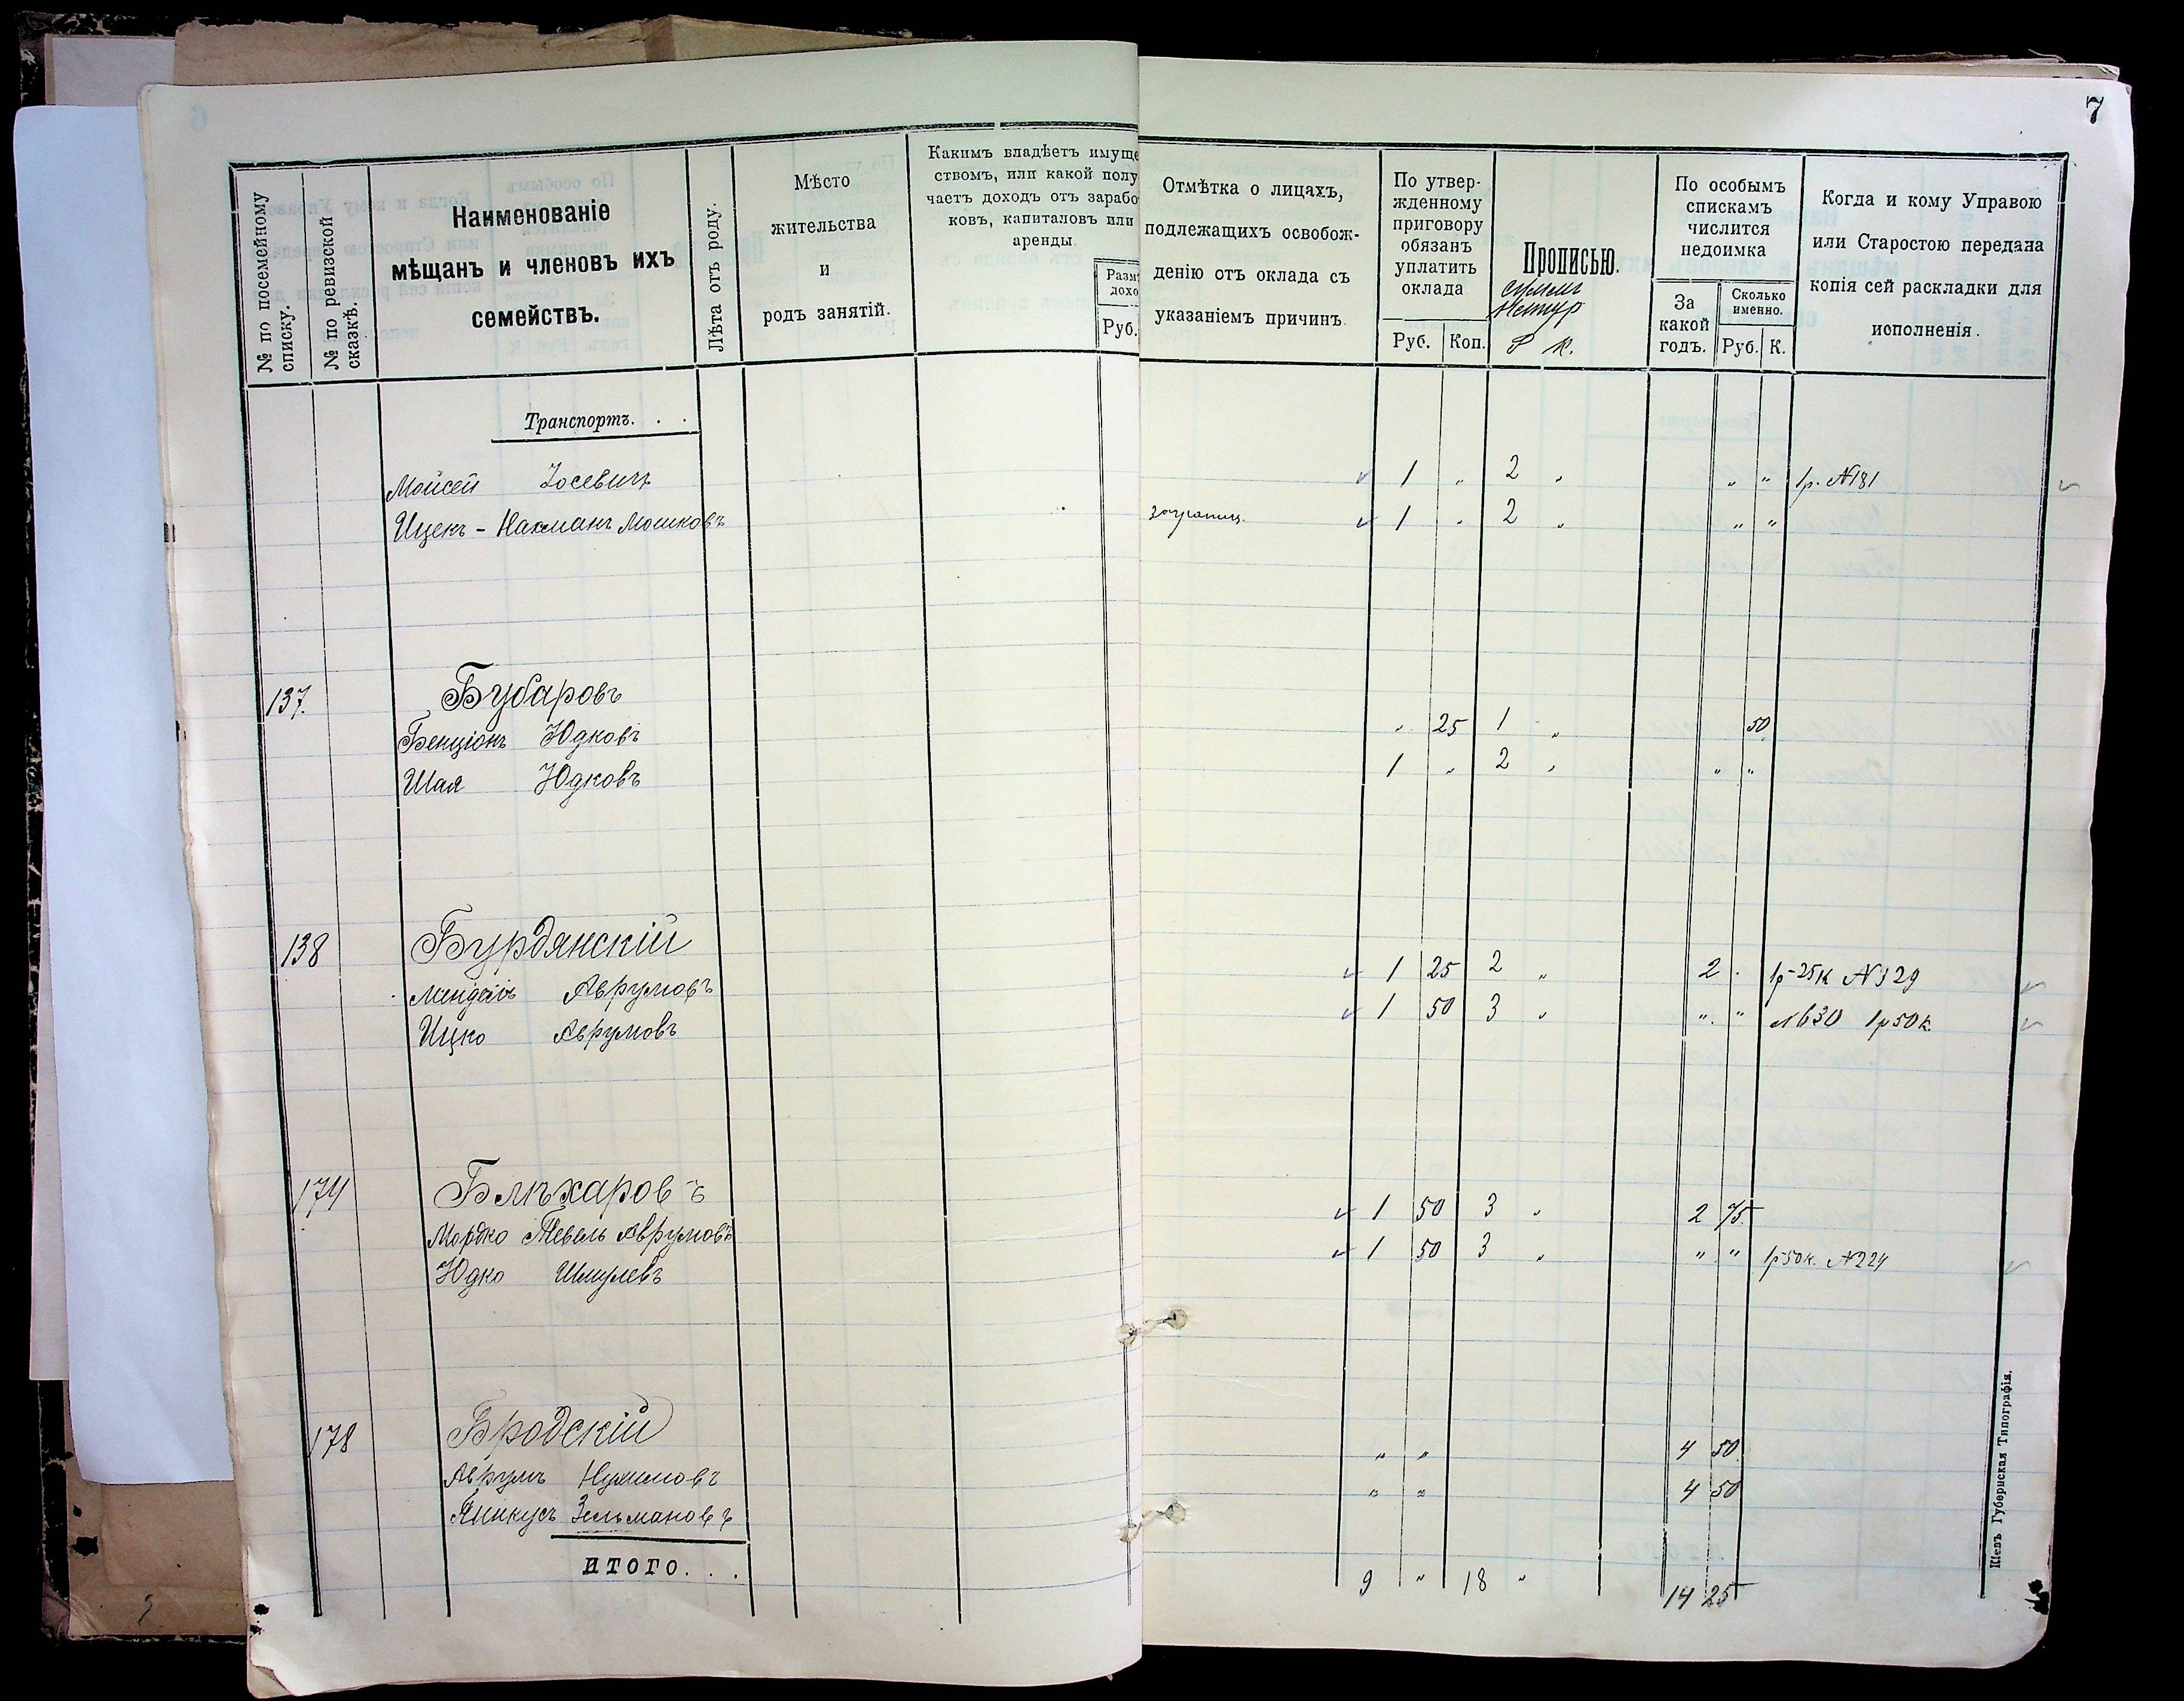 7
№ по посемейному списку.
№ по ревизской сказкѣ.
Наименованіе
мѣщанъ и членовъ ихъ
семействъ.
Лѣта отъ роду.
Мѣсто
жительства
и
родъ занятій.
Какимъ владѣетъ имуще
ствомъ, или какой полу
чаетъ доходъ отъ зарабо
ковъ, капиталовъ или
аренды
Разм
дохо
Руб.
Отмѣтка о лицахъ,
подлежащихъ освобож-
денію отъ оклада съ
указаніемъ причинъ.
По утвер-
жденному
приговору
обязанъ
уплатить
оклада
Руб. Коп.
Прописью.
Р К.
По особымъ
спискамъ
числится
недоимка
За
какой
годъ.
Сколько
именно.
Руб. К.
Когда и кому Управою
или Старостою передана
копія сей раскладки для
исполненія.
Транспортъ. . .
Мойсей Іосевичъ 1 „ 2 „ „ „ 1р. №181
Ицекъ - Нахманъ Мошковъ заграниц. 1 „ 2 „ „ „
137. Бубаровъ
Бенціонъ Юдковъ „ 25 1 „ 50
Шая Юдковъ 1 „ 2 „ „ „
138 Бурдянскій
Мендель Аврумовъ 1 25 2 „ 2 . 1р-25к №329
Ицко Аврумовъ 1 50 3 „ „ „ №630 1р50к.
174 Блѣхаровъ
Мордко Тевель Аврумовъ 1 50 3 „ 2 75
Юдко Шмулевъ 1 50 3 „ „ „ 1р50к. №224
178 Бродскій
Аврумъ Нухимовъ „ „ 4 50
Пинкусъ Зельмановъ „ „ 4 50
ИТОГО. . . 9 „ 18 „ 14 25
Кіевъ Губернская Типографія.